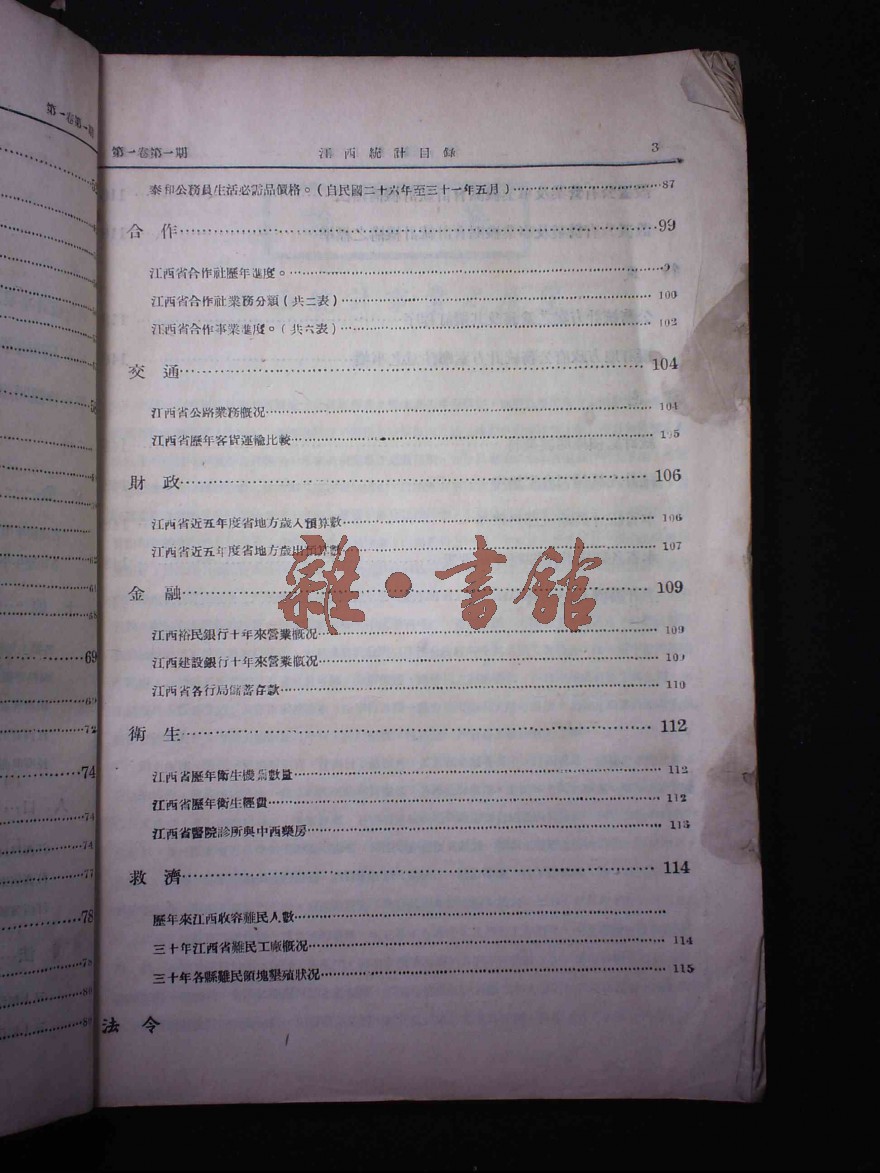 第一卷第一期
第一卷第一期 江西統計目錄 3
泰和公務員生活必需品價格。(自民國二十六年至三十一年五月)……87
合 作……99
江西省合作社歷年進度。……
江西省合作社業務分類(共二表)……100
江西省合作事業進度。(共六表)……102
交 通……104
江西省公路業務概况……104
江西省歷年客貨運輸比較……105
財 政……106
江西省近五年度省地方歲入預算數……106
江西省近五年度省地方歲出預算數……107
金 融……109
雜·書館
江西裕民銀行十年來營業概况……109
江西建設銀行十年來營業概况……109
江西省各行局儲蓄存款……110
衛 生……112
江西省歷年衛生機關數量……112
江西省歷年衛生經費……112
江西省醫院診所與中西藥房……113
救 濟……114
歷年來江西收容難民人數……
三十年江西省難民工廠概况……114
三十年各縣難民領墾墾殖狀况……115
法 令
69
69
72
74
74
74
77
78